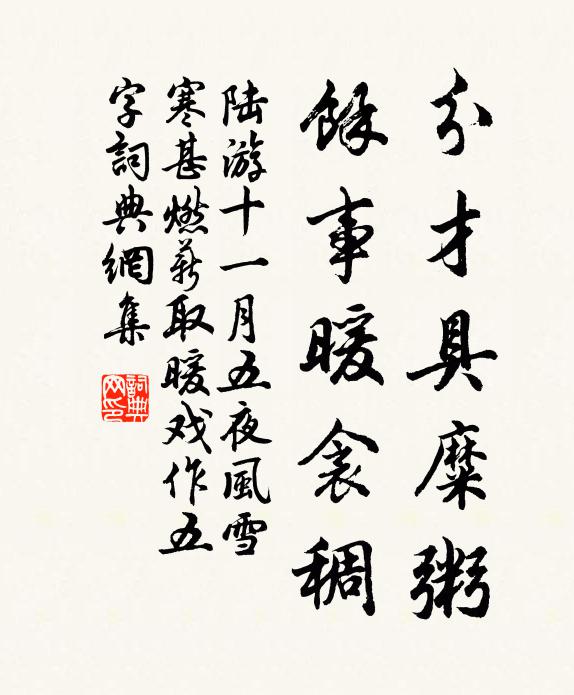 分才具糜粥
餘事暖衾稠
陸游十一月五夜風雪
寒甚燃薪取暖戏作五
字詞典網集
詞典
网印